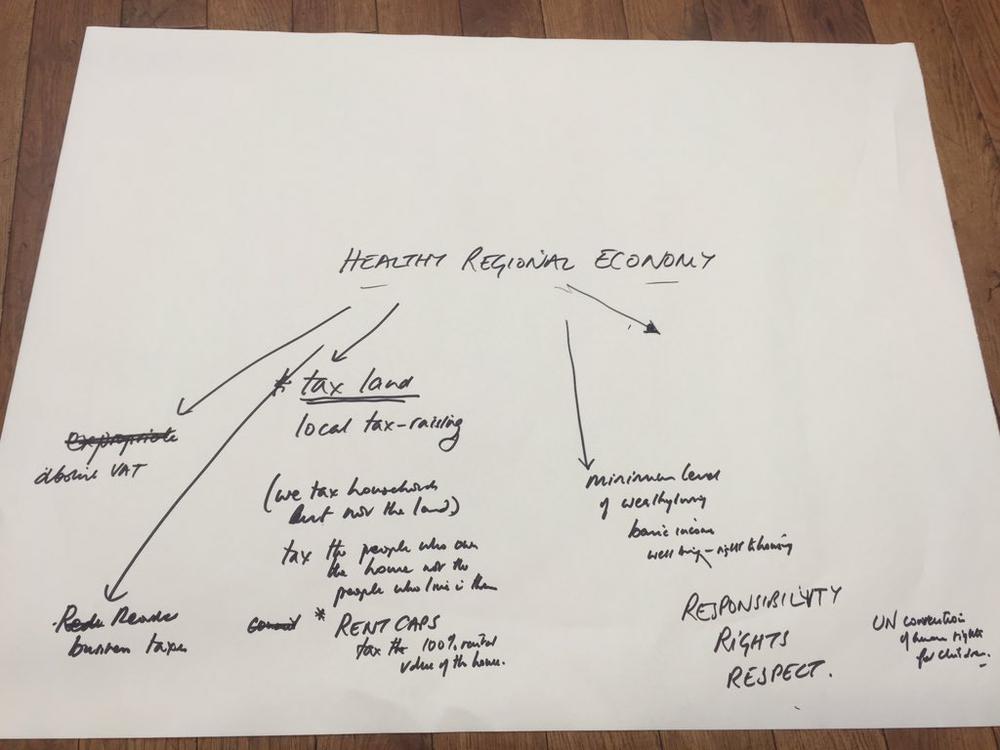 HEALTHY REGIONAL ECONOMY
* tax land
local tax-raising
Expropriate
abolish VAT
(we tax households
but not the land)
tax the people who own
the home not the
people who live in them
minimum level
of
basic income
well being - right to housing
business taxes
* RENT CAPS
tax the 100% rental
value of the house.
RESPONSIBILITY
RIGHTS
RESPECT.
UN convention
of human rights
for children.